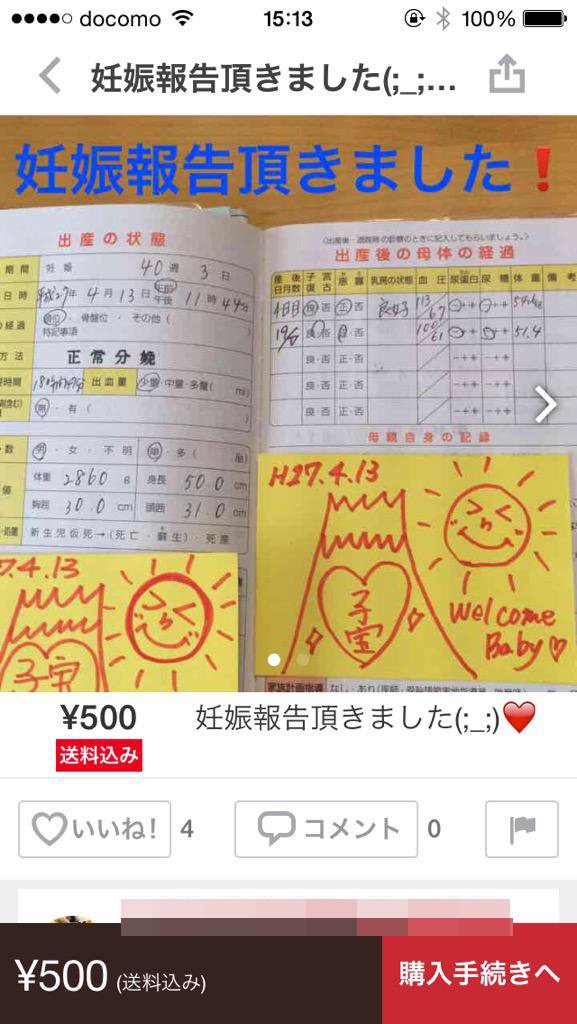 docomo 15:13 100%
妊娠報告頂きました(;_;...
妊娠報告頂きました❗
出産の状態
期間 妊娠 40週 3日
日時 平成27年 4月 13日 午前 午後 11時 44分
経過 頭位・骨盤位・その他(
特記事項
方法 正常分娩
出血量 少量・中量・多量( ml)
無・有(
数 男・女・不明 単・多( 胎)
値 体重 2860 g 身長 50.0 cm
胸囲 30.0 cm 頭囲 31.0 cm
処置 新生児仮死→(死亡・蘇生)・死産
7.4.13
子宝
〈出産後・退院時の診察のときに記入してもらいましょう。〉
出産後の母体の経過
産後日月数 子宮復古 悪露 乳房の状態 血圧 尿蛋白 尿糖 体重 備考
4日目 良・否 正・否 良好 113/67
良・否 正・否 100/61 51.4
良・否 正・否 -+++ -+++
良・否 正・否 -+++ -+++
良・否 正・否 -+++ -+++
母親自身の記録
H27.4.13
子宝
Welcome
Baby♡
家族計画指導 なし・あり
¥500 妊娠報告頂きました(;_;)❤
送料込み
いいね! 4 コメント 0
¥500 (送料込み) 購入手続きへ